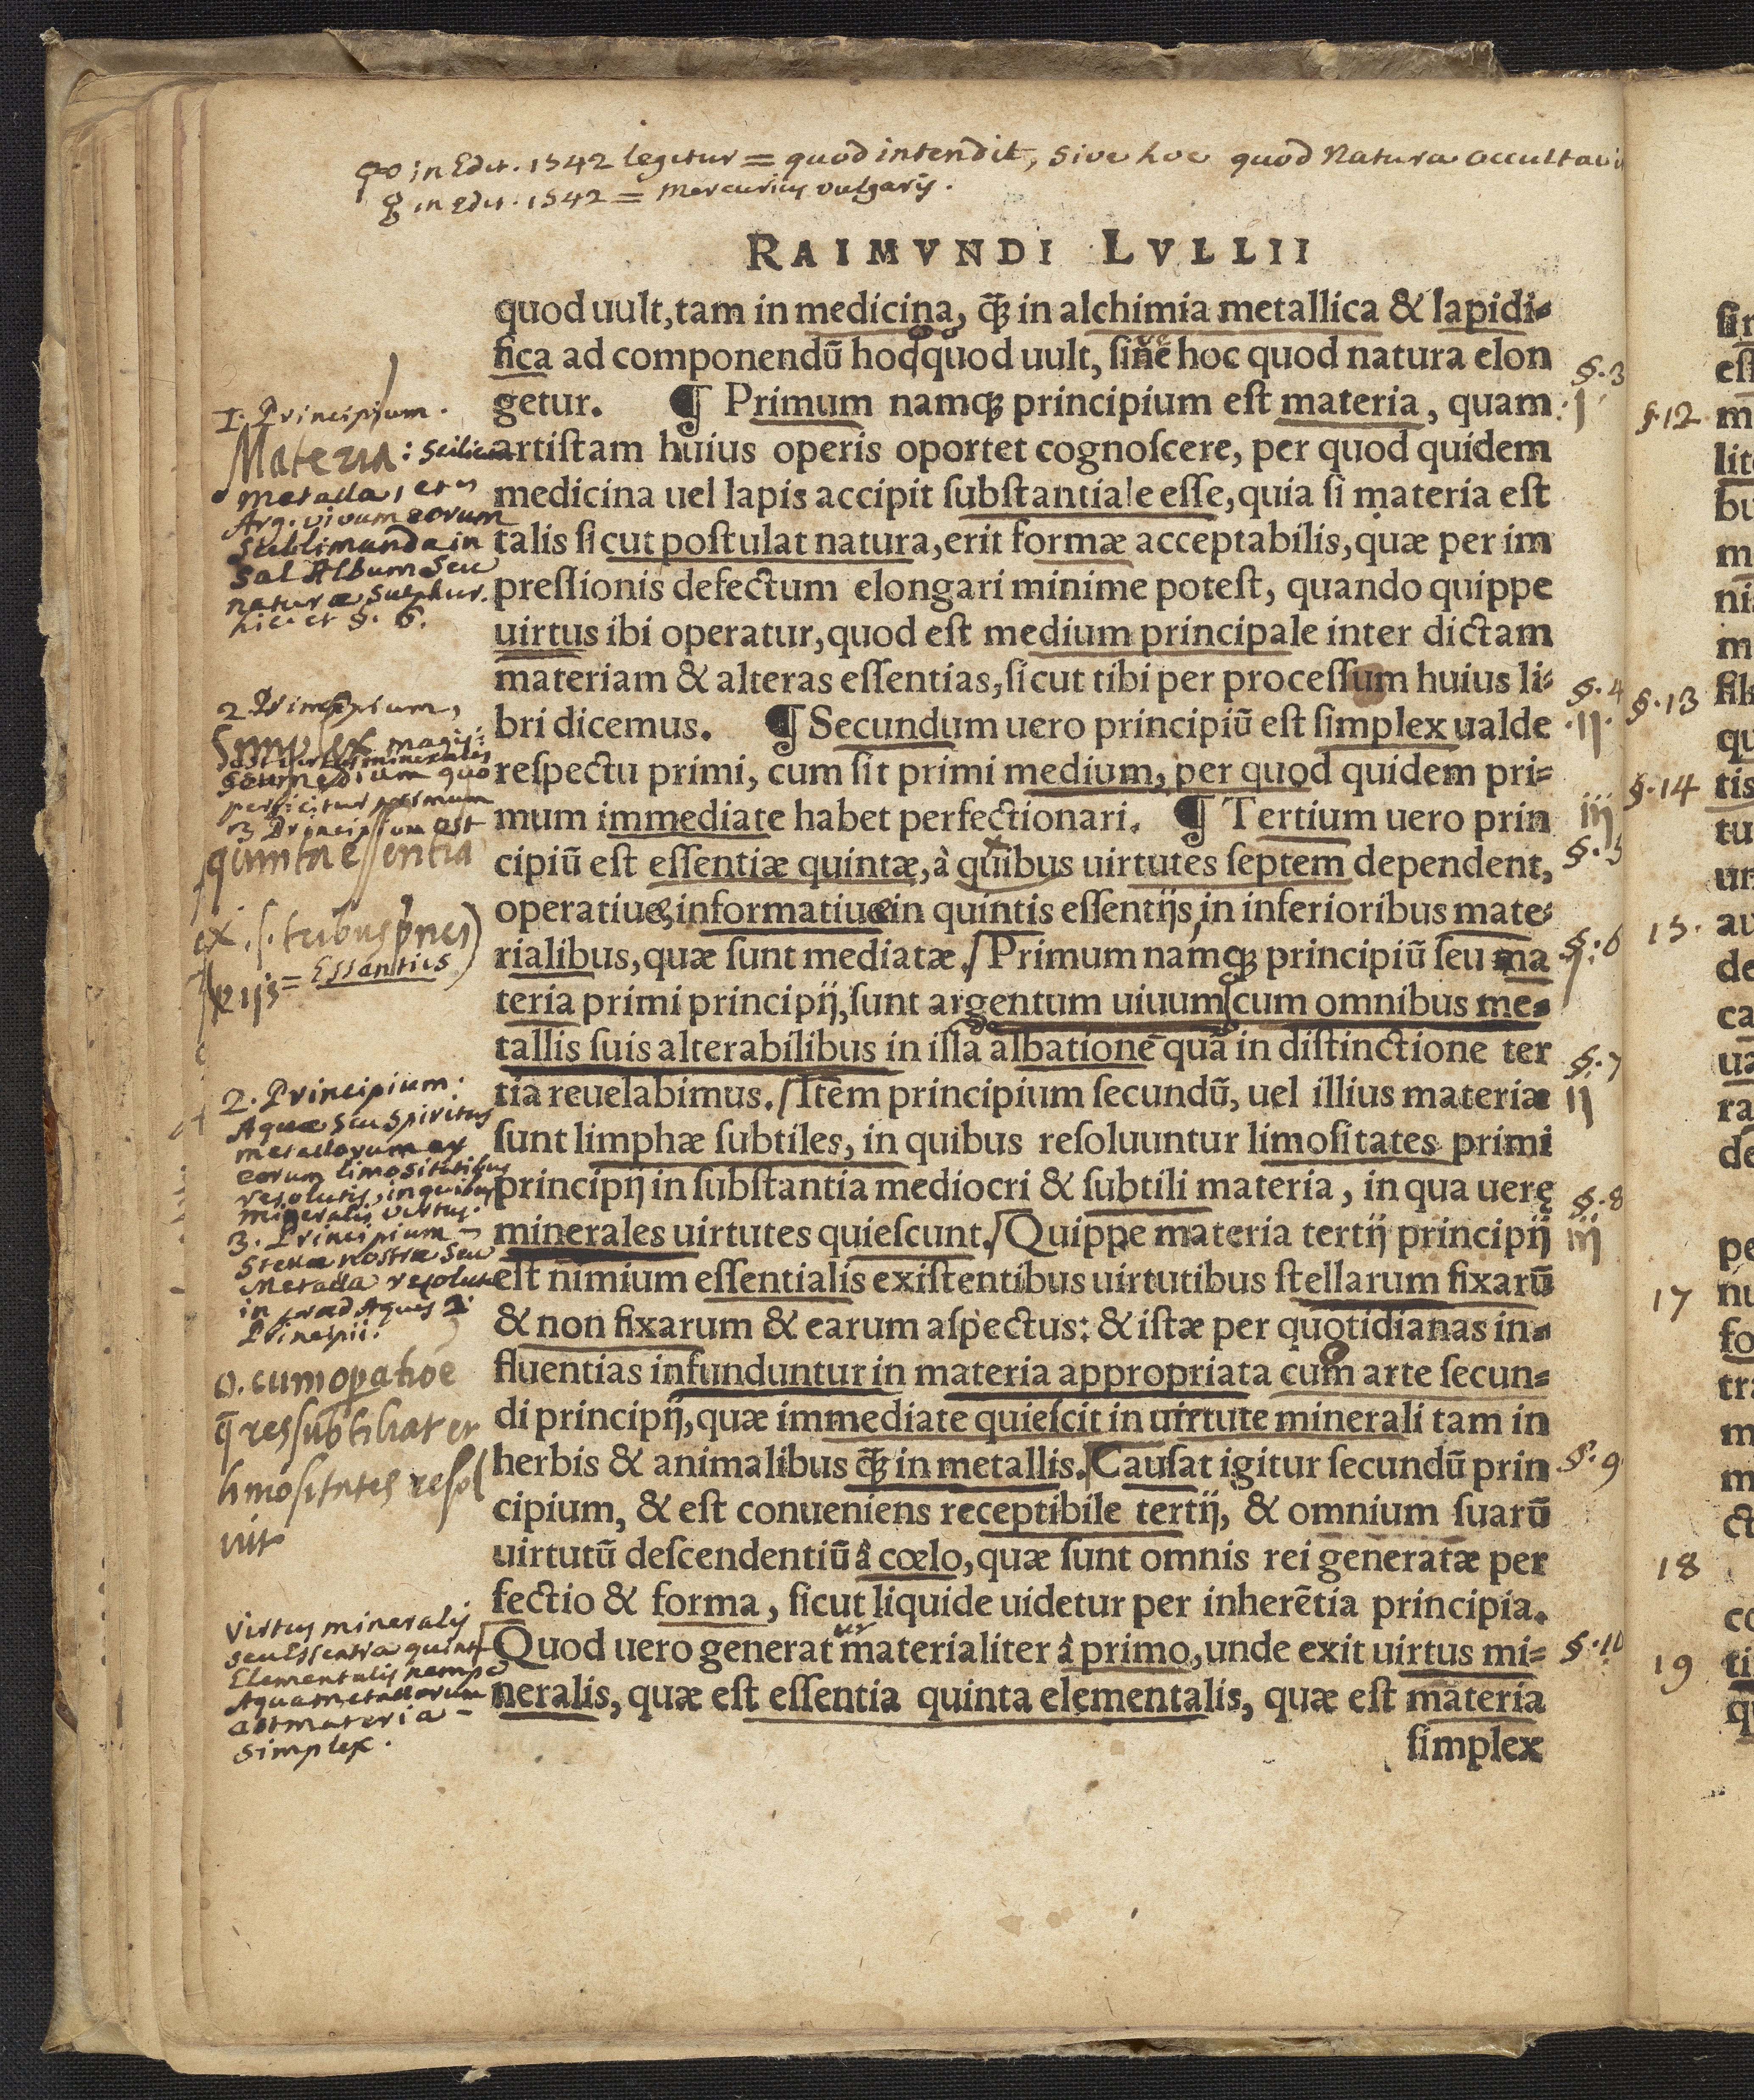 in Edit. 1542 legitur = quod intendit, sive hoc quod Natura occultavi
in edit. 1542 = Mercurius vulgaris.
RAIMVNDI LVLLII
quod uult, tam in medicina, q̃ꝫ in alchimia metallica & lapidi-
fica ad componendū hoc quod uult, sine hoc quod natura elon
getur. ¶ Primum namqꝫ principium est materia, quam
artistam huius operis oportet cognoscere, per quod quidem
medicina uel lapis accipit substantiale esse, quia si materia est
talis sicut postulat natura, erit formæ acceptabilis, quæ per im
pressionis defectum elongari minime potest, quando quippe
uirtus ibi operatur, quod est medium principale inter dictam
materiam & alteras essentias, sicut tibi per processum huius li-
bri dicemus. ¶ Secundum uero principiū est simplex ualde
respectu primi, cum sit primi medium, per quod quidem pri-
mum immediate habet perfectionari. ¶ Tertium uero prin
cipiū est essentiæ quintæ, à quibus uirtutes septem dependent,
operatiuę, informatiuę in quintis essentijs, in inferioribus mate-
rialibus, quæ sunt mediatæ. Primum namqꝫ principiū seu ma
teria primi principij, sunt argentum uiuum cum omnibus me-
tallis suis alterabilibus in illa albatione quā in distinctione ter
tia reuelabimus. Item principium secundū, uel illius materiæ
sunt limphæ subtiles, in quibus resoluuntur limositates primi
principij in substantia mediocri & subtili materia, in qua uerę
minerales uirtutes quiescunt. Quippe materia tertij principij
est nimium essentialis existentibus uirtutibus stellarum fixarū
& non fixarum & earum aspectus: & istæ per quotidianas in-
fluentias infunduntur in materia appropriata cum arte secun-
di principij, quæ immediate quiescit in uirtute minerali tam in
herbis & animalibus q̃ꝫ in metallis. Causat igitur secundū prin
cipium, & est conueniens receptibile tertij, & omnium suarū
uirtutū descendentiū à cœlo, quæ sunt omnis rei generatæ per
fectio & forma, sicut liquide uidetur per inherētia principia.
Quod uero generat materialiter à primo, unde exit uirtus mi-
neralis, quæ est essentia quinta elementalis, quæ est materia
simplex
1. Principium.
Materia: scilicet
metalla, et
Arg. vivum eorum
sublimanda in
Sal Album seu
naturæ sulphur.
hic et §. 6.
2 Principium,
Simplex magis:
seu medium quo
perficitur primum
3 Principium est
quinta essentia
tribus
ijs = Essentiis
2. Principium:
Aquæ seu spiritus
metallorum ex
eorum limositatibus
resolutis, in quibus
mineralis virtus.
3. Principium
Stellæ nostræ seu
Metalla resoluta
in Aquas 2.
Principii.
o. cum opatiōe
q̄ res subtiliat et
limositates resol
vit
Virtus mineralis
seu Essentia quinta
Elementalis nempe
Aqua metallorum
est materia
simplex.
§.3
j
§.4
.ij.
iij
§.5
§.6
j
§.7
ij
§.8
iij
§.9
§.10
§.12
§.13
§.14
15.
17
18
19